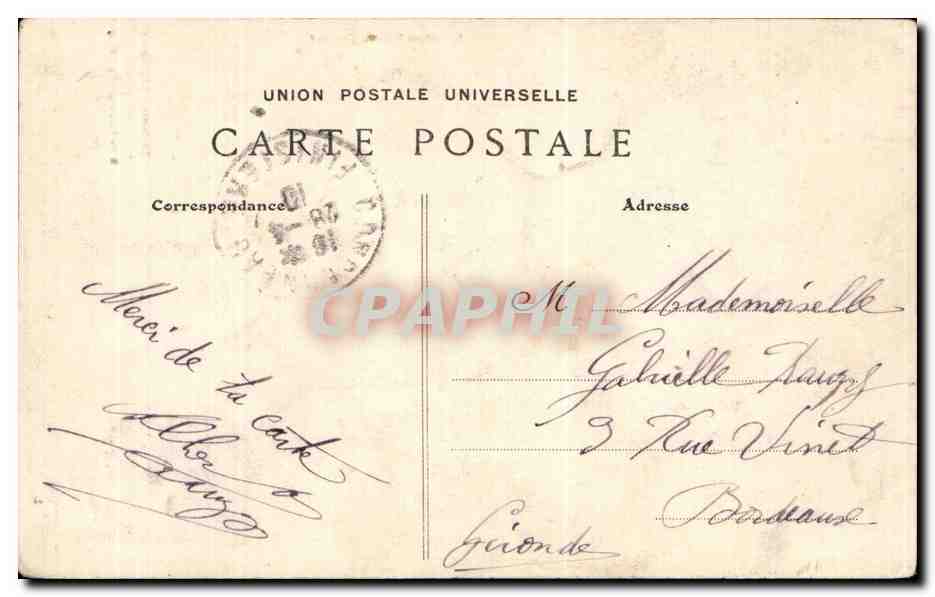 UNION POSTALE UNIVERSELLE
CARTE POSTALE
Correspondance
Adresse
Merci de
ta carte
M Mademoiselle
Gabrielle
3 Rue Vinet
Bordeaux
Gironde
CPAPHIL